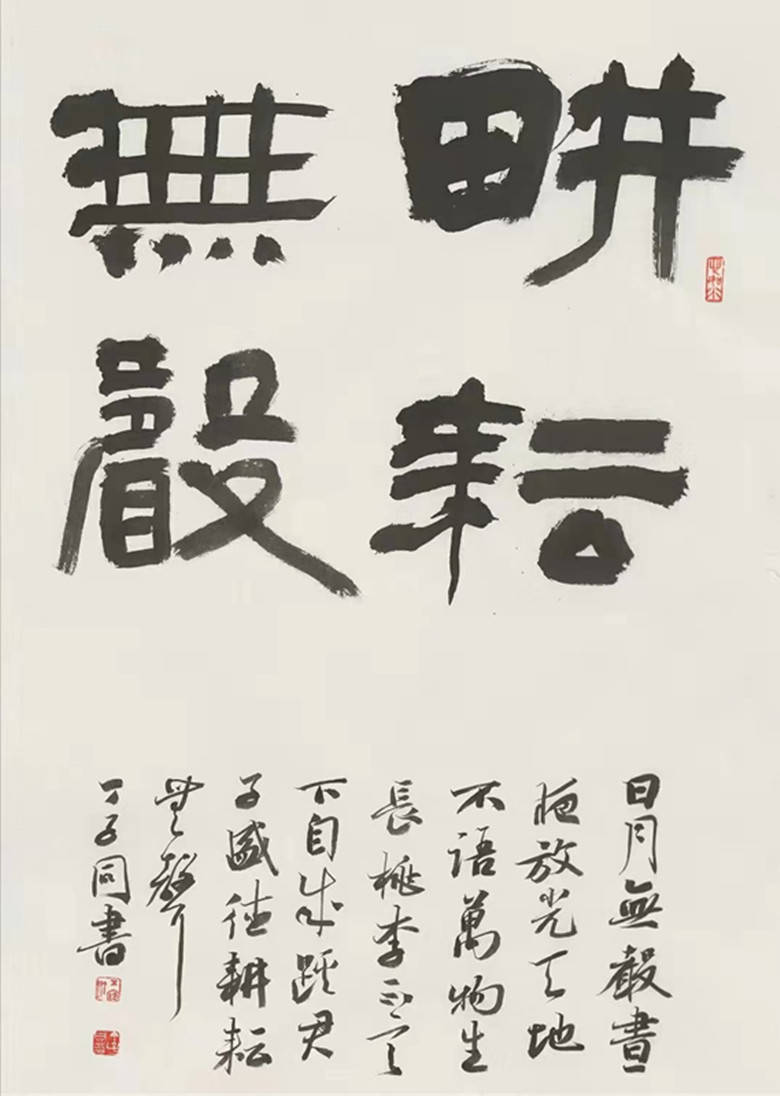 畊耘
無聲
日月無聲晝
夜放光天地
不語萬物生
長桃李不言
下自成蹊君
子盛德耕耘
無聲
丁子同書